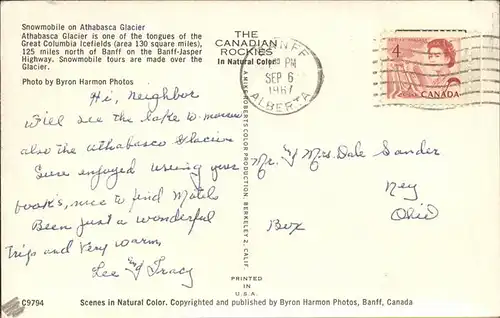 Snowmobile on Athabasca Glacier
Athabasca Glacier is one of the tongues of the
Great Columbia Icefields (area 130 square miles),
125 miles north of Banff on the Banff-Jasper
Highway. Snowmobile tours are made over the
Glacier.
Photo by Byron Harmon Photos
THE
CANADIAN
ROCKIES
In Natural Color
BANFF
PM
SEP 6
1967
ALBERTA
4
CANADA
Hi, Neighbor
Will see the lake to morrow
also the Athabasca Glacier
Sure enjoyed useing your
book's, nice to find Motels
Been just a wonderful
Trip and Very warm
Lee and Tracy
Mr. & Mrs. Dale Sander
Ney
Ohio
Box
A MIKE ROBERTS COLOR PRODUCTION, BERKELEY 2, CALIF.
PRINTED
IN
U.S.A.
C9794
Scenes in Natural Color. Copyrighted and published by Byron Harmon Photos, Banff, Canada